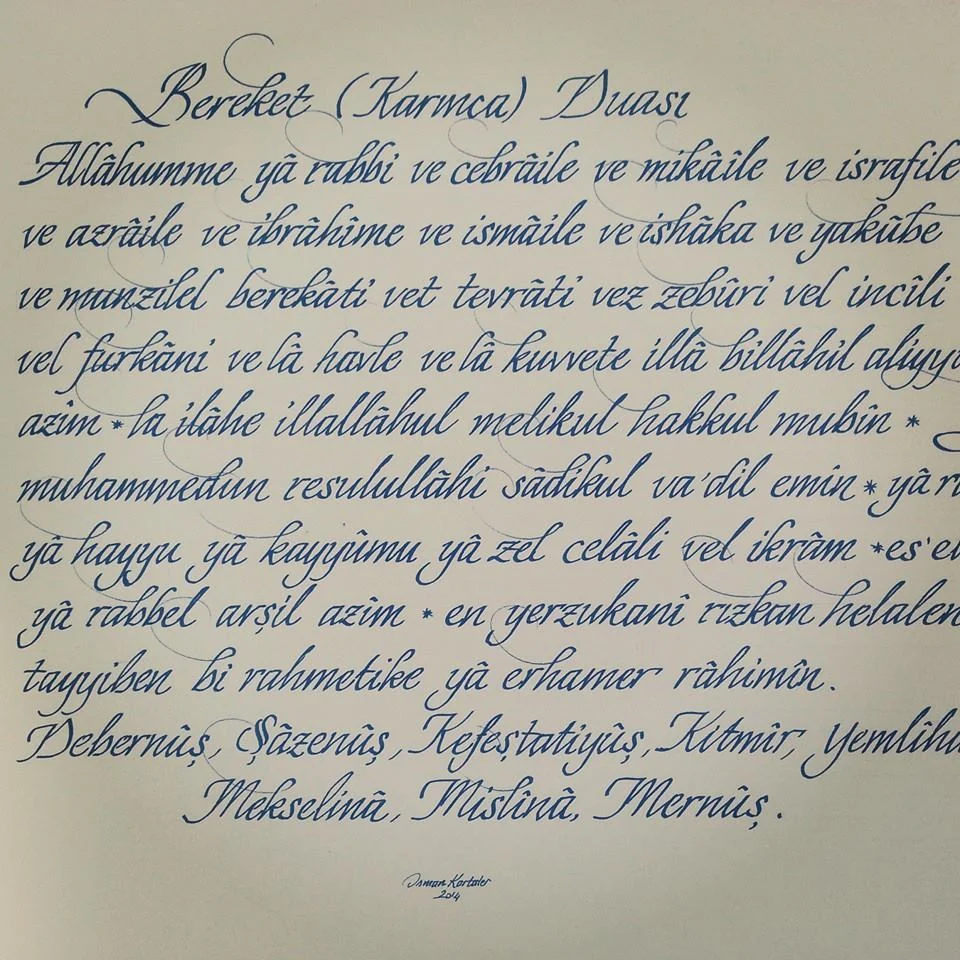 Bereket (Karınca) Duası
Allâhumme yâ rabbi ve cebrâile ve mikâile ve israfile
ve azrâile ve ibrâhîme ve ismâile ve ishâka ve yakûbe
ve munzilel berekâti vet tevrâti vez zebûri vel incîli
vel furkâni ve lâ havle ve lâ kuvvete illâ billâhil aliyy
azîm * la ilâhe illallâhul melikul hakkul mubîn *
muhammedun resulullâhi sâdikul va'dil emin * yâ r
yâ hayyu yâ kayyûmu yâ zel celâli vel ikrâm * es'el
yâ rabbel arşil azîm * en yerzukanî rızkan helalen
tayyiben bi rahmetike yâ erhamer râhimîn.
Debernûş, Şâzenûş, Kefeştatiyûş, Kitmîr, Yemlîh
Mekselinâ, Mislînâ, Mernûş.
Osman
2014